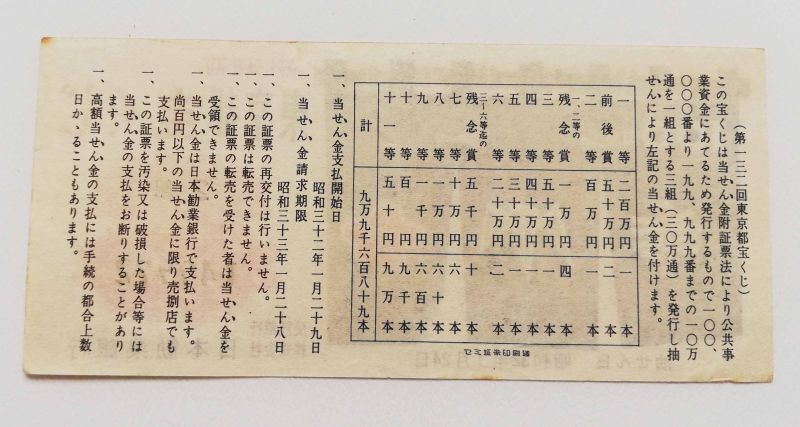 (第一三二回東京都宝くじ)
この宝くじは当せん金附証票法により公共事
業資金にあてるため発行するもので一〇〇、
〇〇〇番より一九九、九九九番までの一〇万
通を一組とする三組(三〇万通)を発行し抽
せんにより左記の当せん金を付けます。
一等 二百万円 一本
前後賞 五十万円 二本
二等 百万円 一本
一、二等の残念賞 一万円 四本
三等 五十万円 一本
四等 一本
五等 三十万円 一本
六等 二十万円 二本
三〜六等迄の残念賞 五千円 十本
七等 十万円 六本
八等 一万円 六十本
九等 一千円 六百本
十等 百円 九千本
十一等 五十円 九万本
計 九万九千六百八十九本
一、当せん金支払開始日
昭和三十二年一月二十九日
一、当せん金請求期限
昭和三十三年一月二十八日
一、この証票の再交付は行いません。
一、この証票は転売できません。
一、この証票の転売を受けた者は当せん金を
受領できません。
一、当せん金は日本勧業銀行で支払います。
尚百円以下の当せん金に限り売捌店でも
支払います。
一、この証票を汚染又は破損した場合等には
当せん金の支払をお断りすることがあり
ます。
一、高額当せん金の支払には手続の都合上数
日かゝることもあります。